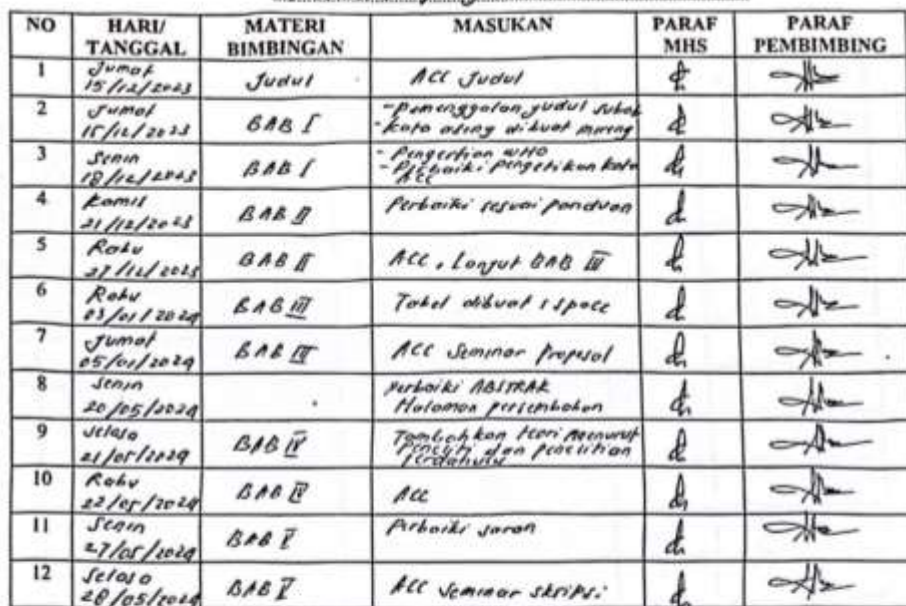 NO HARI/ TANGGAL MATERI BIMBINGAN MASUKAN PARAF MHS PARAF PEMBIMBING
1 Jumat 15/12/2023 Judul ACC Judul
2 Jumat 15/12/2023 BAB I - Pemenggalan Judul
- Kata asing dibuat miring
3 Senin 18/12/2023 BAB I - Pengertian WHO
- Perbaiki pengetikan kata
ACC
4 Kamis 21/12/2023 BAB II Perbaiki sesuai panduan
5 Rabu 27/12/2023 BAB II ACC, Lanjut BAB III
6 Rabu 03/01/2024 BAB III Tabel dibuat 1 space
7 Jumat 05/01/2024 BAB III ACC Seminar Proposal
8 Senin 20/05/2024 Perbaiki ABSTRAK
Halaman persembahan
9 Selasa 21/05/2024 BAB IV Tambahkan teori menurut
Peneliti dan penelitian
terdahulu
10 Rabu 22/05/2024 BAB IV ACC
11 Senin 27/05/2024 BAB V Perbaiki saran
12 Selasa 28/05/2024 BAB V ACC Seminar skripsi